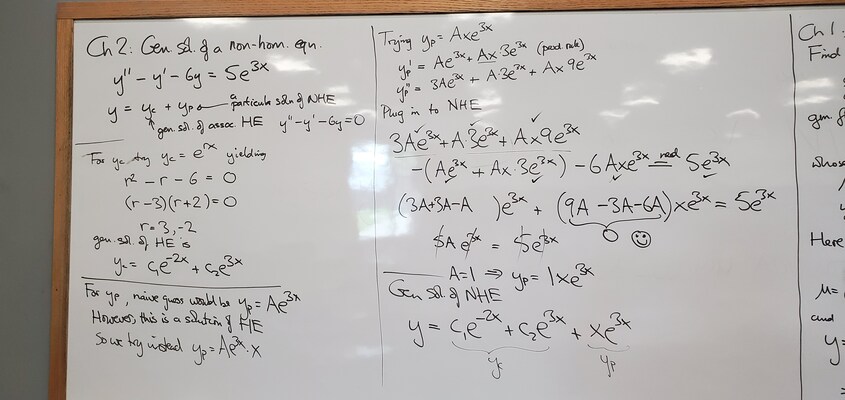 Ch 2: Gen. sol. of a non-hom. eqn.
y'' - y' - 6y = 5e^{3x}
y = y_c + y_p ← a particular soln of NHE
↑ gen. sol. of assoc. HE y'' - y' - 6y = 0
For y_c try y_c = e^{rx} yielding
r² - r - 6 = 0
(r-3)(r+2) = 0
r = 3, -2
gen. sol. of HE is
y_c = c₁e^{-2x} + c₂e^{3x}
For y_p, naive guess would be y_p = Ae^{3x}
However, this is a solution of HE
So we try instead y_p = Ae^{3x}·x
Trying y_p = Axe^{3x}
y_p' = Ae^{3x} + Ax·3e^{3x} (prod rule)
y_p'' = 3Ae^{3x} + A·3e^{3x} + Ax9e^{3x}
Plug in to NHE
3Ae^{3x} + A·3e^{3x} + Ax9e^{3x}
-(Ae^{3x} + Ax·3e^{3x}) - 6Axe^{3x} = need 5e^{3x}
(3A+3A-A )e^{3x} + (9A-3A-6A)xe^{3x} = 5e^{3x}
0 ☺
5Ae^{3x} = 5e^{3x}
A=1 ⇒ y_p = 1xe^{3x}
Gen sol. of NHE
y = c₁e^{-2x} + c₂e^{3x} + xe^{3x}
y_c y_p
Ch 1:
Find
gen. f
whose
Here
μ=
and
y=
=